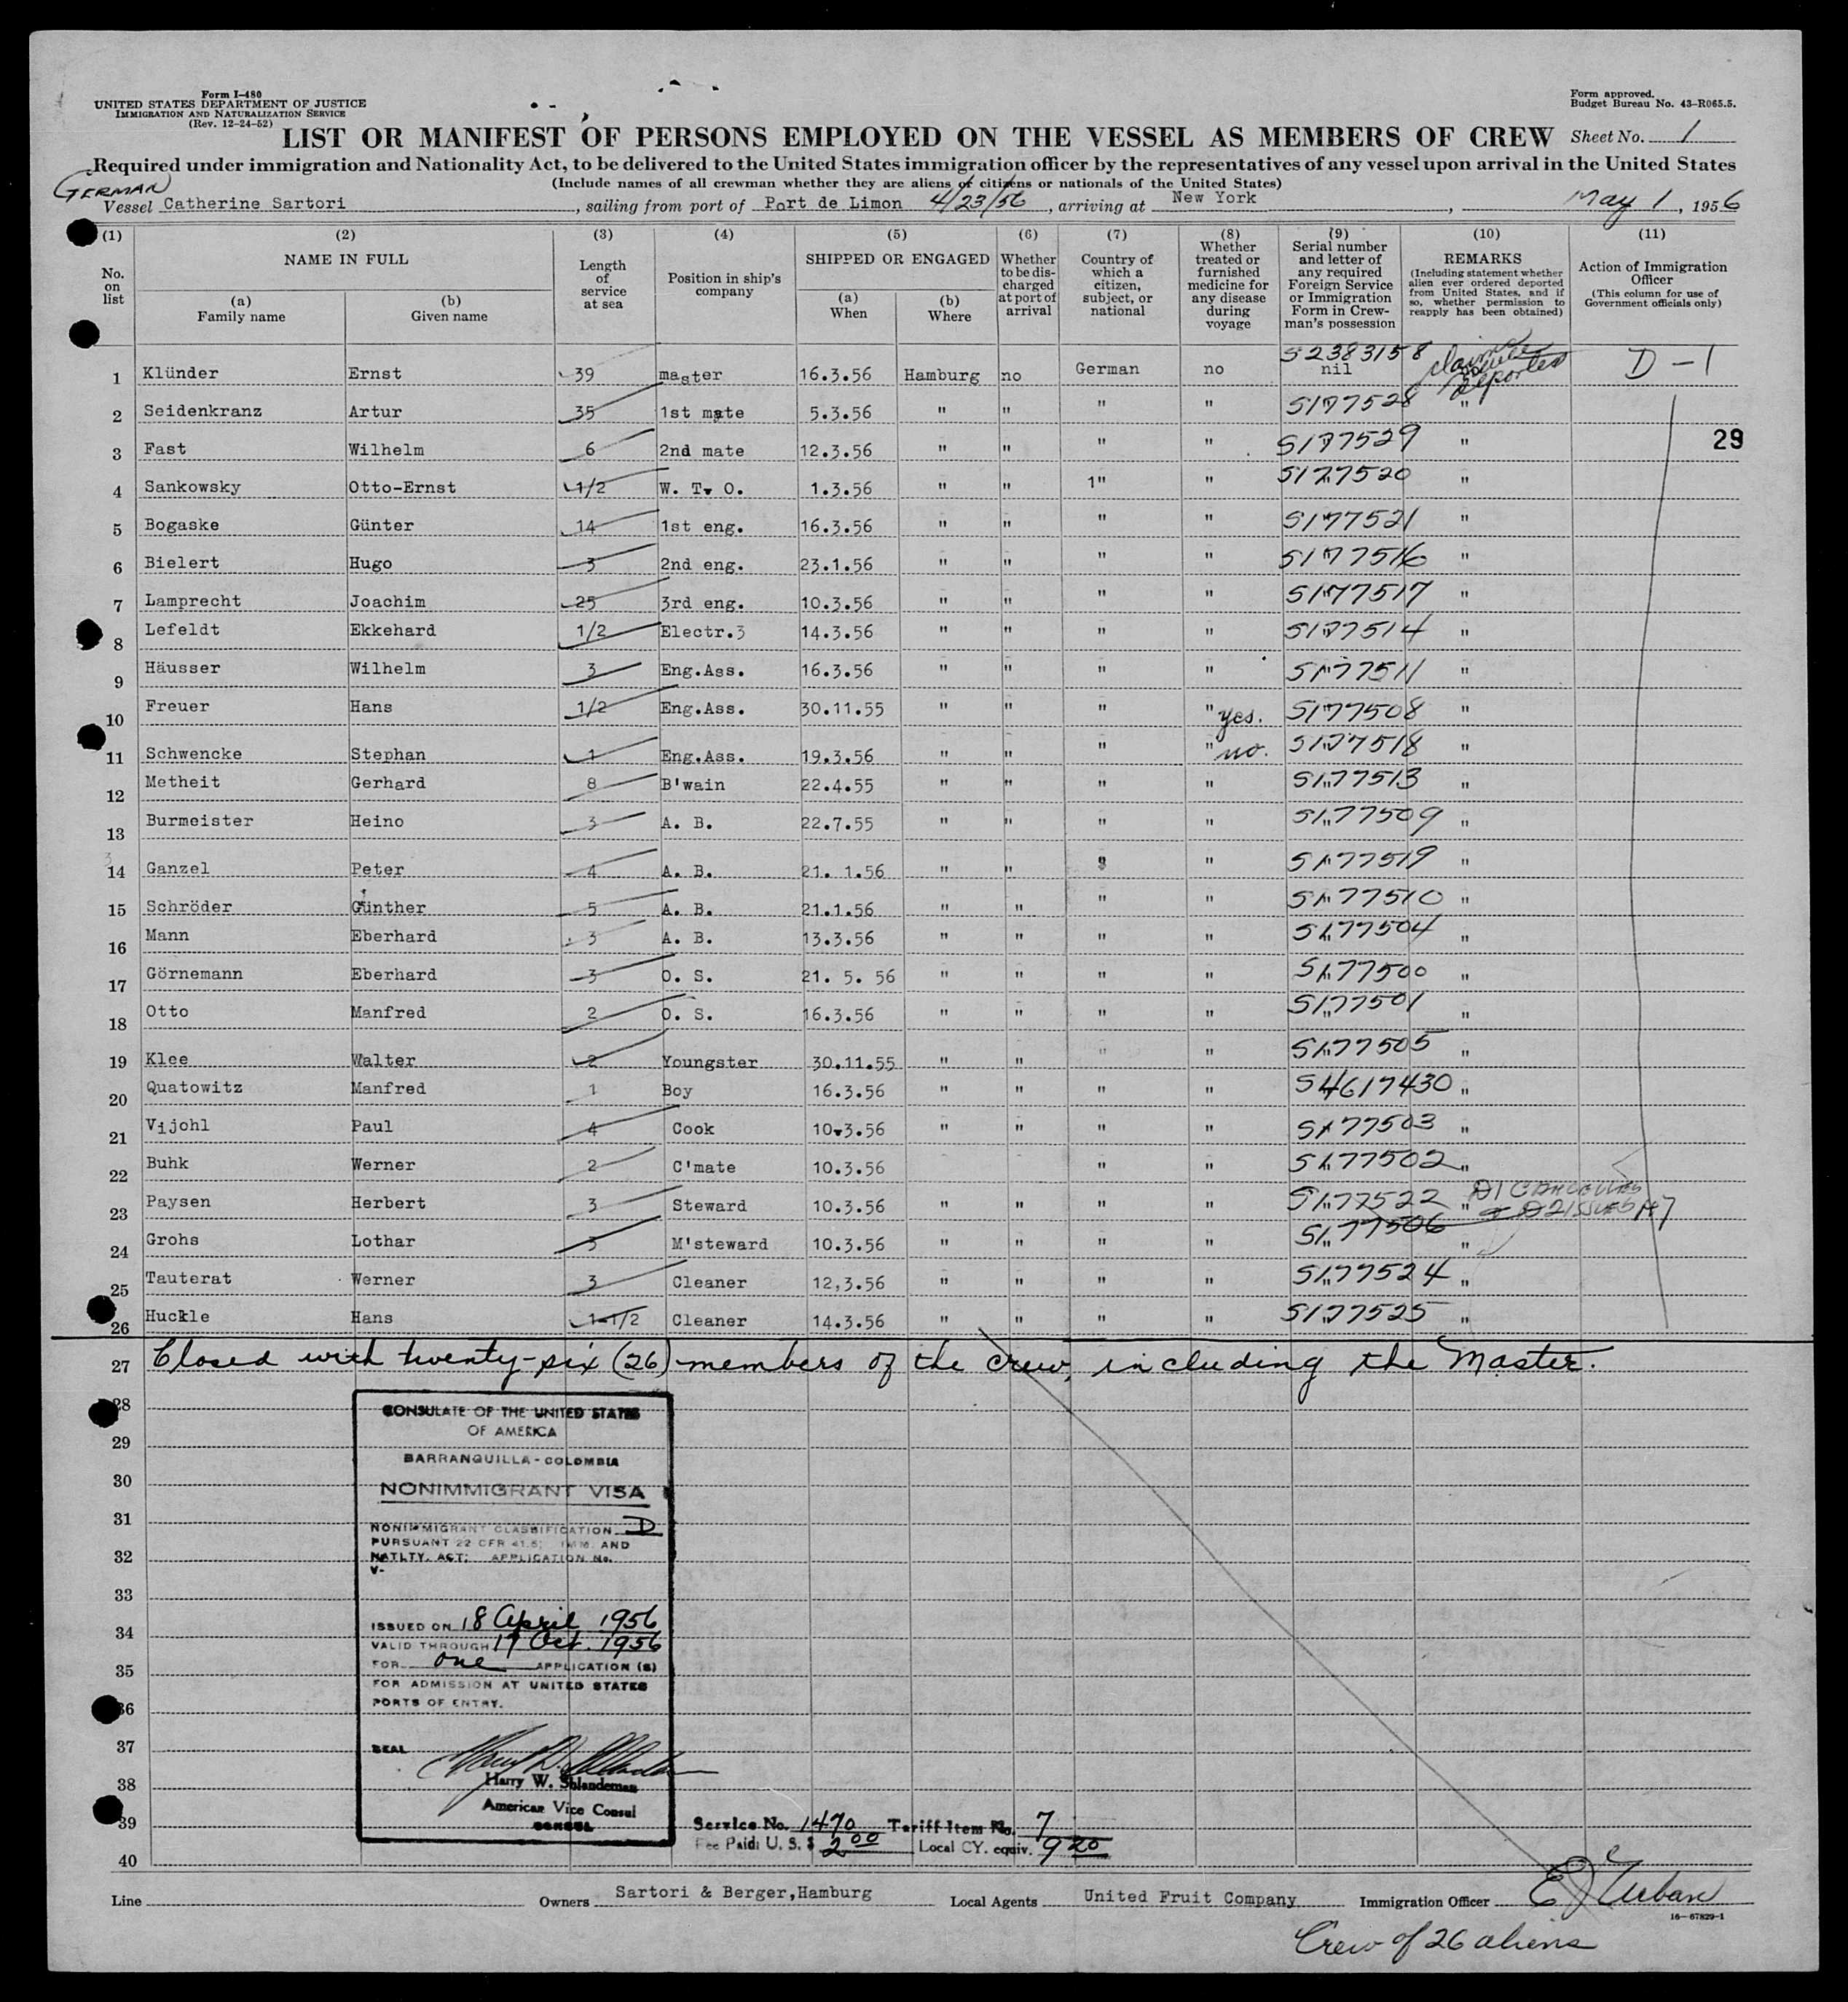 Form I-480
UNITED STATES DEPARTMENT OF JUSTICE
IMMIGRATION AND NATURALIZATION SERVICE
(Rev. 12-24-52)
Form approved.
Budget Bureau No. 43-R065.5.
LIST OR MANIFEST OF PERSONS EMPLOYED ON THE VESSEL AS MEMBERS OF CREW Sheet No. 1
Required under immigration and Nationality Act, to be delivered to the United States immigration officer by the representatives of any vessel upon arrival in the United States
(Include names of all crewman whether they are aliens or citizens or nationals of the United States)
GERMAN
Vessel Catherine Sartori, sailing from port of Port de Limon 4/23/56, arriving at New York, May 1, 1956
(1) No. on list
(2) NAME IN FULL (a) Family name (b) Given name
(3) Length of service at sea
(4) Position in ship's company
(5) SHIPPED OR ENGAGED (a) When (b) Where
(6) Whether to be discharged at port of arrival
(7) Country of which a citizen, subject, or national
(8) Whether treated or furnished medicine for any disease during voyage
(9) Serial number and letter of any required Foreign Service or Immigration Form in Crewman's possession
(10) REMARKS (Including statement whether alien ever ordered deported from United States, and if so, whether permission to reapply has been obtained)
(11) Action of Immigration Officer (This column for use of Government officials only)
1 Klünder Ernst 39 master 16.3.56 Hamburg no German no S2383158 nil claims deported D-1
2 Seidenkranz Artur 35 1st mate 5.3.56 " " " " S177528 "
3 Fast Wilhelm 6 2nd mate 12.3.56 " " " " S177529 " 29
4 Sankowsky Otto-Ernst 1/2 W. T. O. 1.3.56 " " 1" " S177520 "
5 Bogaske Günter 14 1st eng. 16.3.56 " " " " S177521 "
6 Bielert Hugo 3 2nd eng. 23.1.56 " " " " S177516 "
7 Lamprecht Joachim 25 3rd eng. 10.3.56 " " " " S177517 "
8 Lefeldt Ekkehard 1/2 Electr.3 14.3.56 " " " " S177514 "
9 Häusser Wilhelm 3 Eng.Ass. 16.3.56 " " " " S177511 "
10 Freuer Hans 1/2 Eng.Ass. 30.11.55 " " " " yes. S177508 "
11 Schwencke Stephan 1 Eng.Ass. 19.3.56 " " " " no. S177518 "
12 Metheit Gerhard 8 B'wain 22.4.55 " " " " S177513 "
13 Burmeister Heino 3 A. B. 22.7.55 " " " " S177509 "
14 Ganzel Peter 4 A. B. 21. 1.56 " " " " S177519 "
15 Schröder Günther 5 A. B. 21.1.56 " " " " S177510 "
16 Mann Eberhard 3 A. B. 13.3.56 " " " " S177504 "
17 Görnemann Eberhard 3 O. S. 21. 5. 56 " " " " S177500 "
18 Otto Manfred 2 O. S. 16.3.56 " " " " S177501 "
19 Klee Walter 2 Youngster 30.11.55 " " " " S177505 "
20 Quatowitz Manfred 1 Boy 16.3.56 " " " " S4617430 "
21 Vijohl Paul 4 Cook 10.3.56 " " " " S177503 "
22 Buhk Werner 2 C'mate 10.3.56 " " S177502 "
23 Paysen Herbert 3 Steward 10.3.56 " " " " S177522 " D1 CANCELLED & D2 ISSUED
24 Grohs Lothar 3 M'steward 10.3.56 " " " " S177506 "
25 Tauterat Werner 3 Cleaner 12,3.56 " " " " S177524 "
26 Huckle Hans 1-1/2 Cleaner 14.3.56 " " " " S177525 "
27 Closed with twenty-six (26) members of the crew, including the Master.
28
29
30
31
32
33
34
35
36
37
38
39
40
CONSULATE OF THE UNITED STATES
OF AMERICA
BARRANQUILLA - COLOMBIA
NONIMMIGRANT VISA
NONIMMIGRANT CLASSIFICATION D
PURSUANT 22 CFR 41.5; IMM. AND
NATLTY. ACT; APPLICATION No.
V-
ISSUED ON 18 April 1956
VALID THROUGH 17 Oct. 1956
FOR one APPLICATION (S)
FOR ADMISSION AT UNITED STATES
PORTS OF ENTRY.
SEAL
Harry W. Shlaudeman
American Vice Consul
CONSUL
Service No. 1470 Tariff Item No. 7
Fee Paid: U. S. $ 2.00 Local CY. equiv. 9.20
Line Owners Sartori & Berger,Hamburg Local Agents United Fruit Company Immigration Officer E J Urban
16-67829-1
Crew of 26 aliens